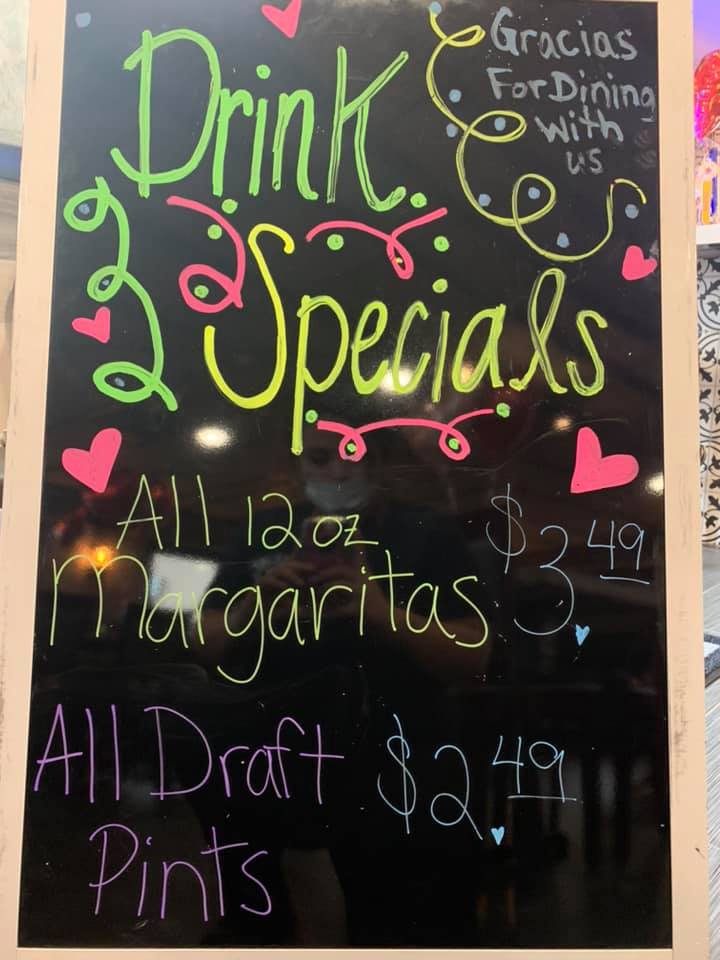 Drink
Specials
Gracias
For Dining
with
us
All 12 oz
Margaritas $3.49
All Draft
Pints $2.49